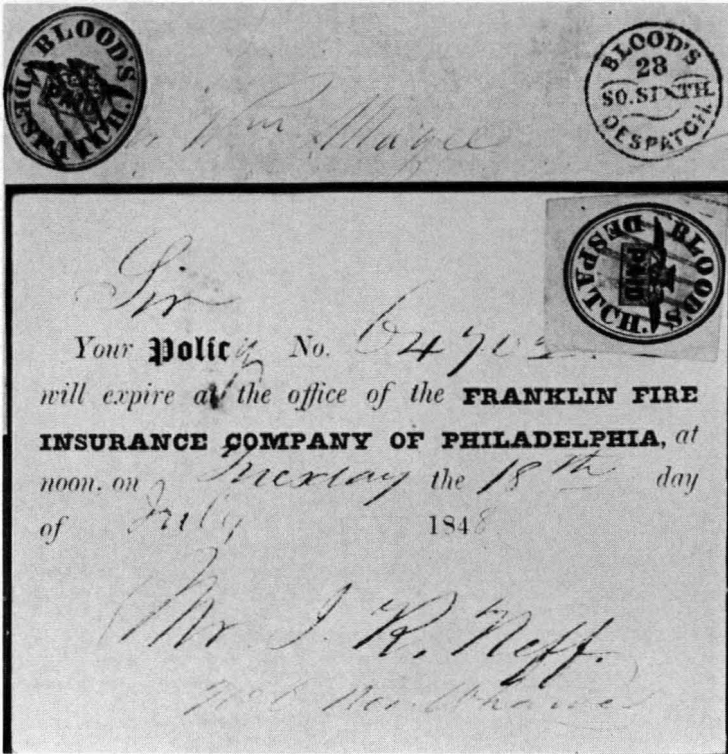 BLOOD'S
PAID
DESPATCH.
BLOOD'S
28
SO. SIXTH.
DESPATCH.
Wm Magee
BLOOD'S
PAID
DESPATCH.
Sir
Your Policy No.
will expire at the office of the FRANKLIN FIRE
INSURANCE COMPANY OF PHILADELPHIA, at
noon. on Tuesday the 18th day
of July 1848
Mr J. R. Neff.